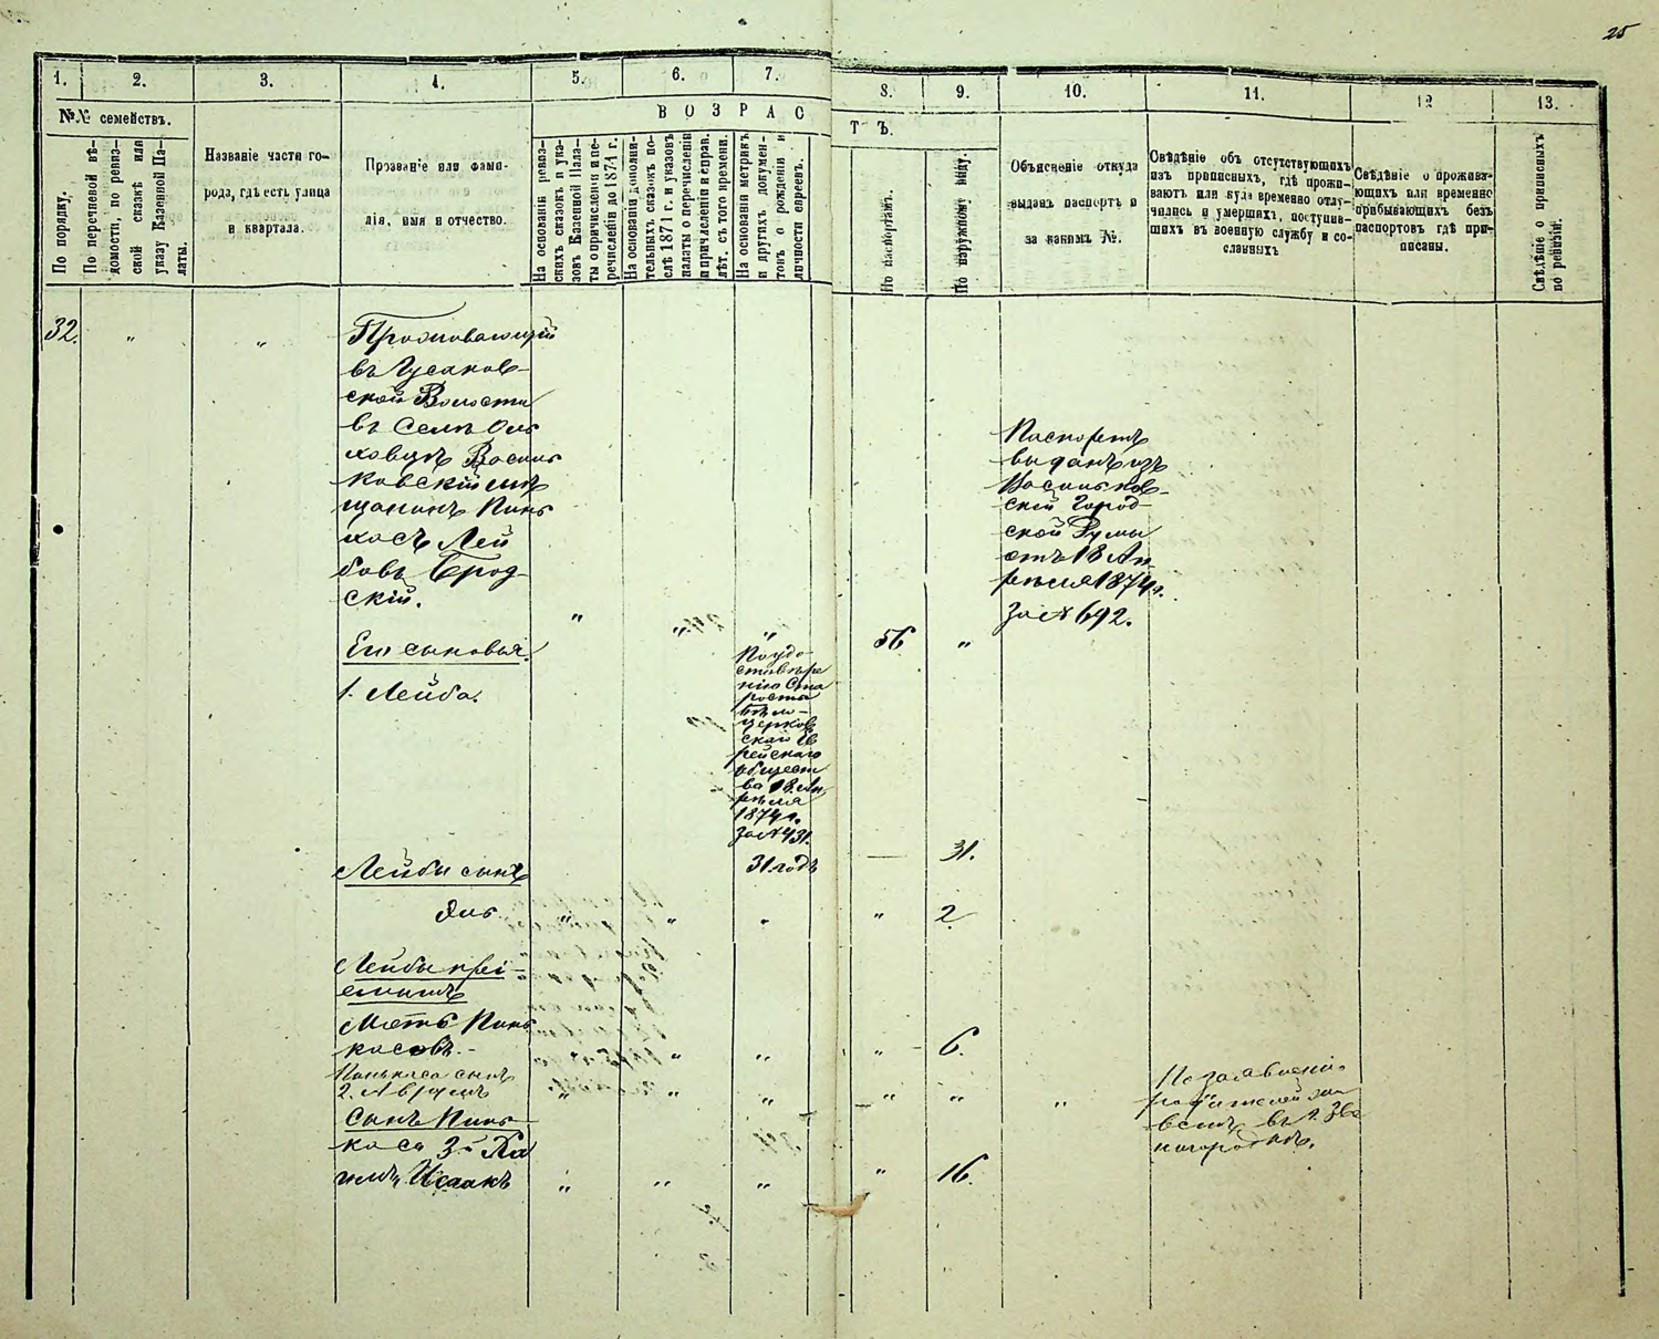 25
1.
2.
3.
4.
5.
6.
7.
8.
9.
10.
11.
12
13.
№№ семействъ.
По порядку.
По перечневой вѣ-
домости, по ревиз-
ской сказкѣ или
указу Казенной Па-
латы.
Названіе части го-
рода, гдѣ есть улица
и квартала.
Прозваніе или фами-
лія, имя и отчество.
ВОЗРАС
ТЪ.
На основаніи ревиз-
скихъ сказокъ и ука-
зовъ Казенной Пала-
ты о причисленіи и пе-
речисленіи до 1874 г.
На основаніи дополни-
тельныхъ сказокъ по-
слѣ 1871 г. и указовъ
палаты о перечисленіи
и причисленіи и справ.
лѣт. съ того времени.
На основаніи метрикъ
и другихъ докумен-
товъ о рожденіи и
личности евреевъ.
По паспортамъ.
По наружному виду.
Объясненіе откуда
выданъ паспортъ и
за какимъ №.
Свѣдѣніе объ отсутствующихъ
изъ приписныхъ, гдѣ прожи-
ваютъ или куда временно отлу-
чились и умершихъ, поступив-
шихъ въ военную службу и со-
сланныхъ
Свѣдѣніе о прожива-
ющихъ или временно
прибывающихъ безъ
паспортовъ гдѣ при-
писаны.
Свѣдѣніе о приписныхъ
по ревизіи.
32.
"
"
Проживающій
въ Гусаков-
ской Волости
въ Селѣ Оль
ховцѣ Василь
ковскій мѣ
щанинъ Пинь
хасъ Лей
бовъ Брод-
скій.
"
"
"
56
"
Паспортъ
выданъ изъ
Васильков-
ской Город-
ской Думы
отъ 18 Ап
рѣля 1874 г.
за № 692.
Его сыновья:
1. Лейба.
По удо-
стовѣре
нію Ста
росты
Бѣло-
церков
скаго Ев
рейскаго
общест
ва 18 Ап
рѣля
1874 г.
за № 431.
31 годъ
—
31.
Лейбы сынъ
Эль
"
"
"
"
2
Лейбы прі-
емышъ
Моть Пинь
касовъ.-
"
"
"
6.
Панькаса сынъ
2. Аврумъ
"
"
"
"
"
"
По заявленію
родителей жи
ветъ въ г. Зве
нигородкѣ.
Сынъ Пинь
каса 3-й Ха
имъ Исаакъ
"
"
"
"
16.